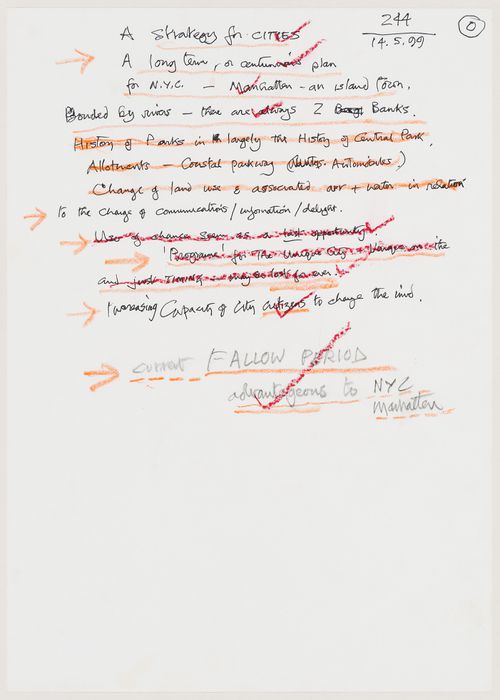 244
14.5.99
0
A Strategy for CITIES
A long term, or centurions plan
for N.Y.C. — Manhattan - an island town,
Bonded by rivers — there are always 2 Banks.
History of Parks in largely the History of Central Park,
Allotments — Coastal parkway ( Automobiles,)
Change of land use & associated air + water in relation
to the change of communications/information/delight.
Use of chance seen as a last opportunity
'Programs' for The Unique City + Unique on the
and just Timing — may be lost for ever!
Increasing Capacity of City citizens to change the mind.
current FALLOW PERIOD
advantageous to NYC
Manhattan